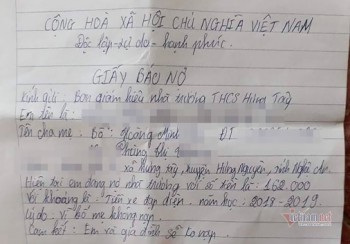 CỘNG HOÀ XÃ HỘI CHỦ NGHĨA VIỆT NAM
Độc lập - tự do - hạnh phúc.
GIẤY BÁO NỢ
Kính gửi: Ban giám hiệu nhà trường THCS Hưng Tây
Em tên là:
Tên cha mẹ: Bố: Hoàng Minh ĐT
Phùng Thị
xã Hưng Tây, huyện Hưng Nguyên, tỉnh Nghệ An
Hiện tại em đang nợ nhà trường với số tiền là: 162.000
Với khoản: Tiền xe đạp điện. năm học: 2018-2019
Lý do: vì bố mẹ không nạp.
Cam kết: Em và gia đình sẽ lo nạp.